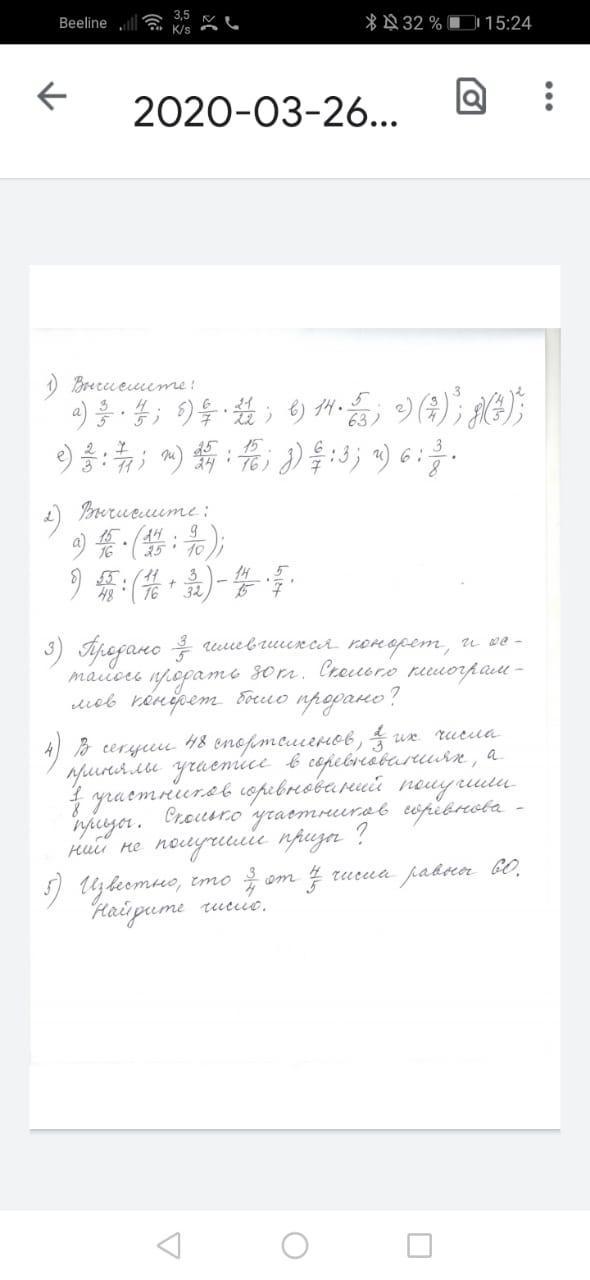 Beeline 3,5 K/s 32 % 15:24
2020-03-26...
1) Вычислите:
а) 3/5 · 4/5; б) 6/7 · 21/22; в) 14 · 5/63; г) (3/4)³; д) (4/5)²;
е) 2/3 : 7/11; ж) 25/24 : 15/16; з) 6/7 : 3; и) 6 : 3/8.
2) Вычислите:
а) 15/16 · (24/25 : 9/10);
б) 55/48 : (11/16 + 3/32) - 14/15 · 5/7.
3) Продано 3/5 имевшихся конфет, и ос-
талось продать 30 кг. Сколько килограм-
мов конфет было продано?
4) В секции 48 спортсменов, 2/3 их числа
приняли участие в соревнованиях, а
1/8 участников соревнований получили
призы. Сколько участников соревнова-
ний не получили призы?
5) Известно, что 3/4 от 4/5 числа равны 60.
Найдите число.